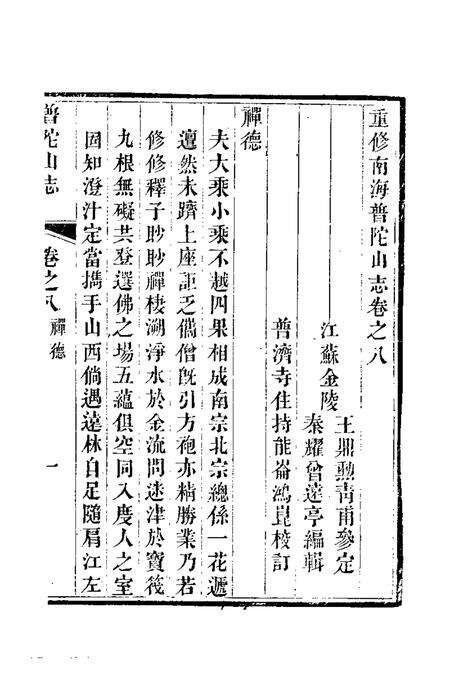 重修南海普陀山志卷之八
江蘇金陵
王鼎勳靑甫參定
秦耀曾遠亭編輯
普濟寺住持能崙鴻崑校訂
禪德
夫大乘小乘不越四果相成南宗北宗總係一花遞
邅然未躋上座詎乏儁僧旣引方袍亦精勝業乃若
修修釋子眇眇禪棲溯淨水於金流問迷津於寶筏
九根無礙共登選佛之場五蘊俱空同入度人之室
固知澄汁定當攜手山西倘遇遠林自足隨肩江左
普陀山志
卷之八
禪德
一